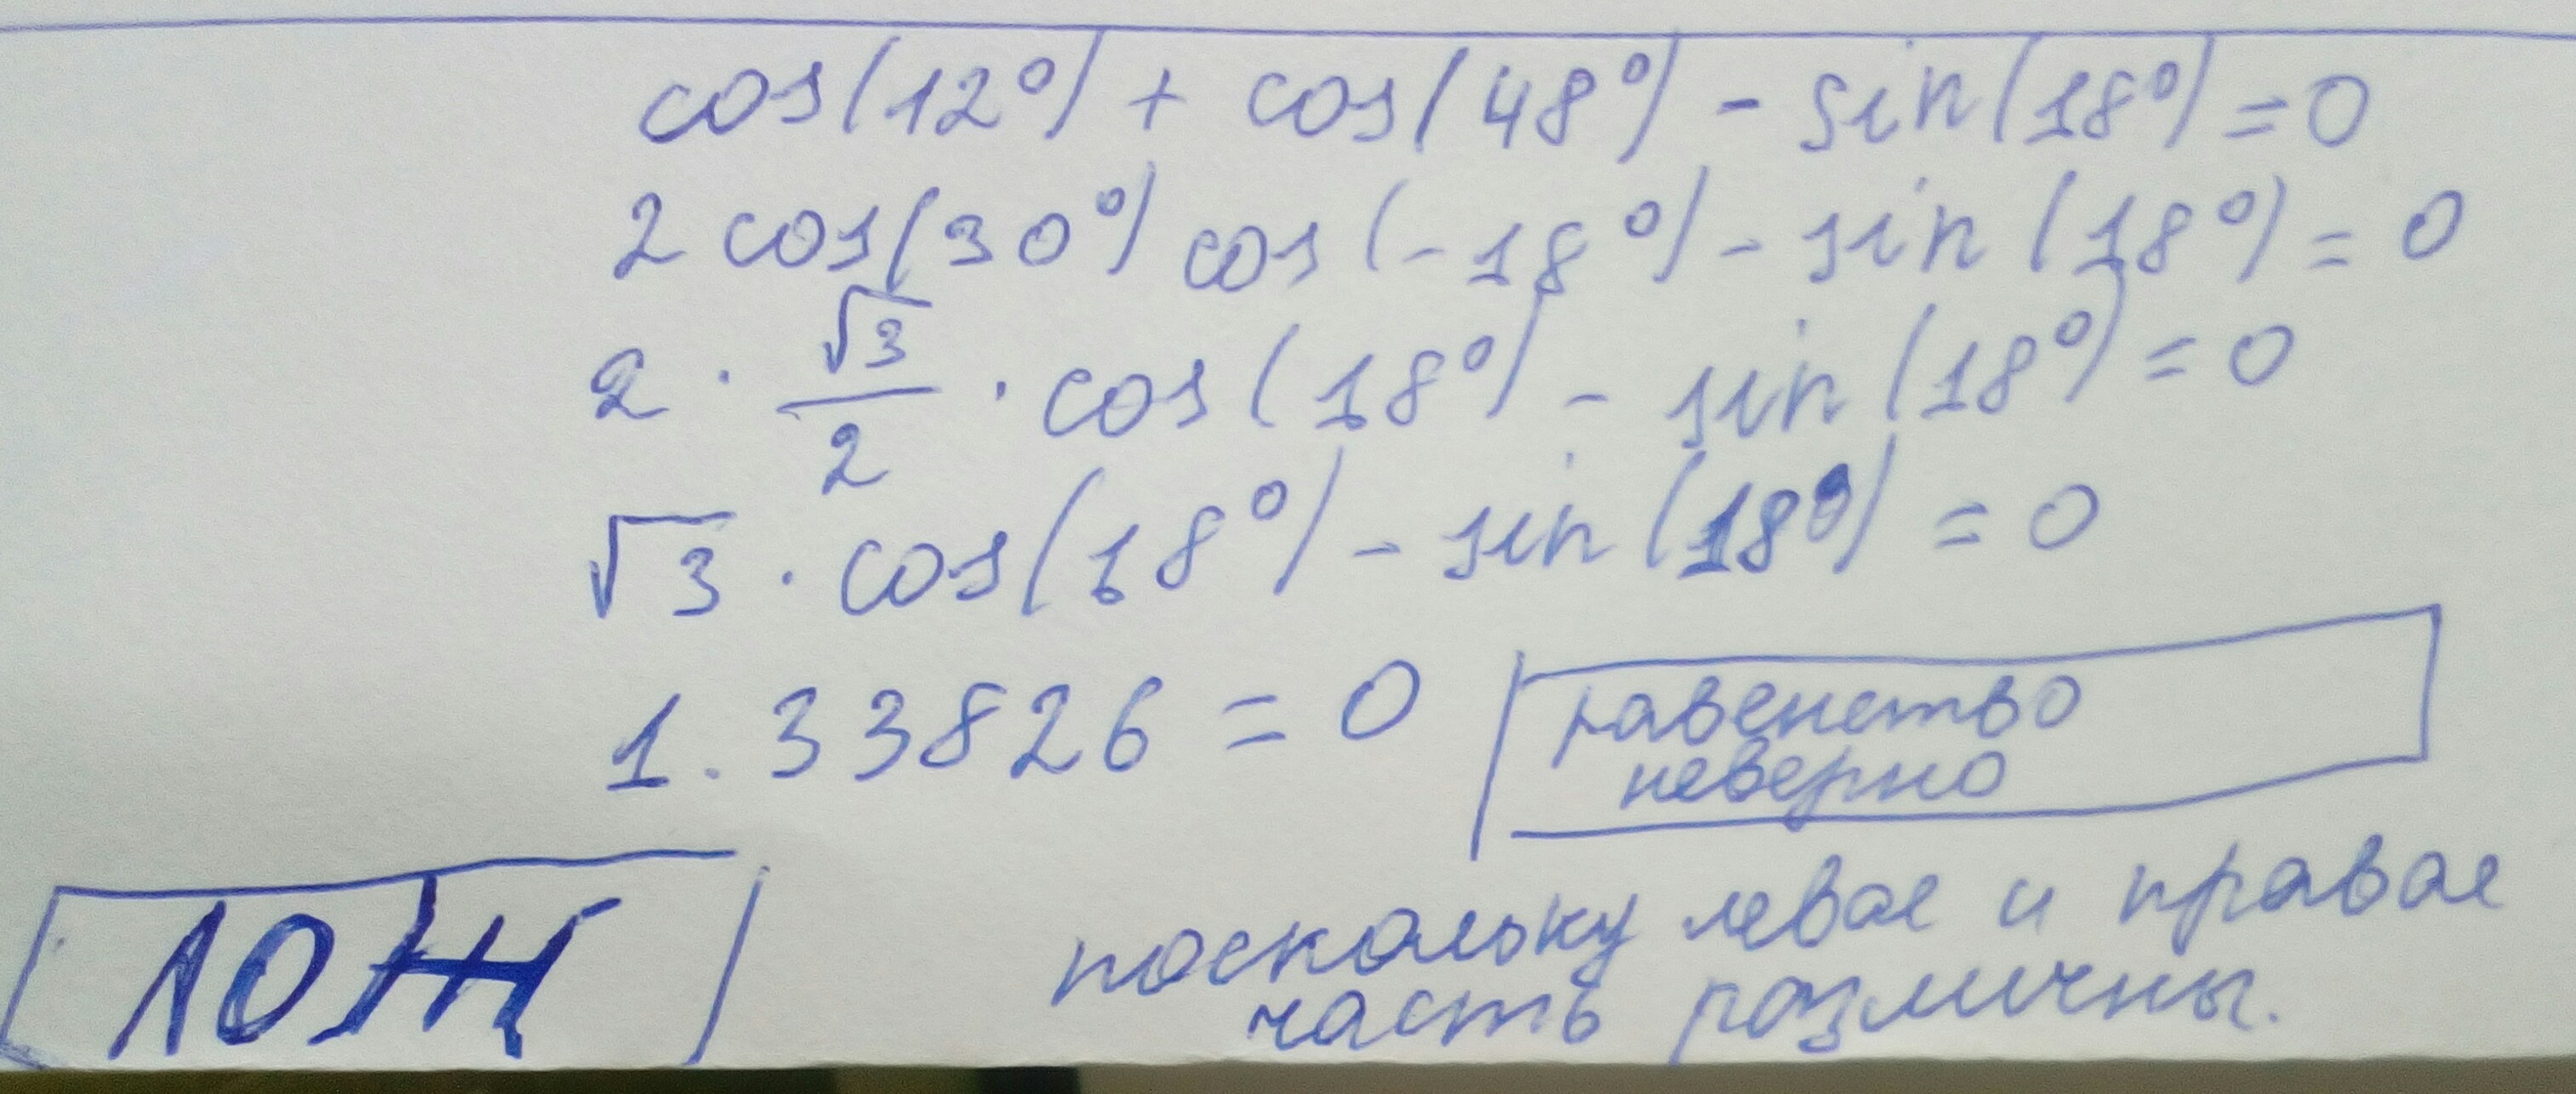 cos(12°) + cos(48°) - sin(18°) = 0
2 cos(30°) cos(-18°) - sin(18°) = 0
2 · √3/2 · cos(18°) - sin(18°) = 0
√3 · cos(18°) - sin(18°) = 0
1.33826 = 0
равенство
неверно
поскольку левае и правае
часть различны.